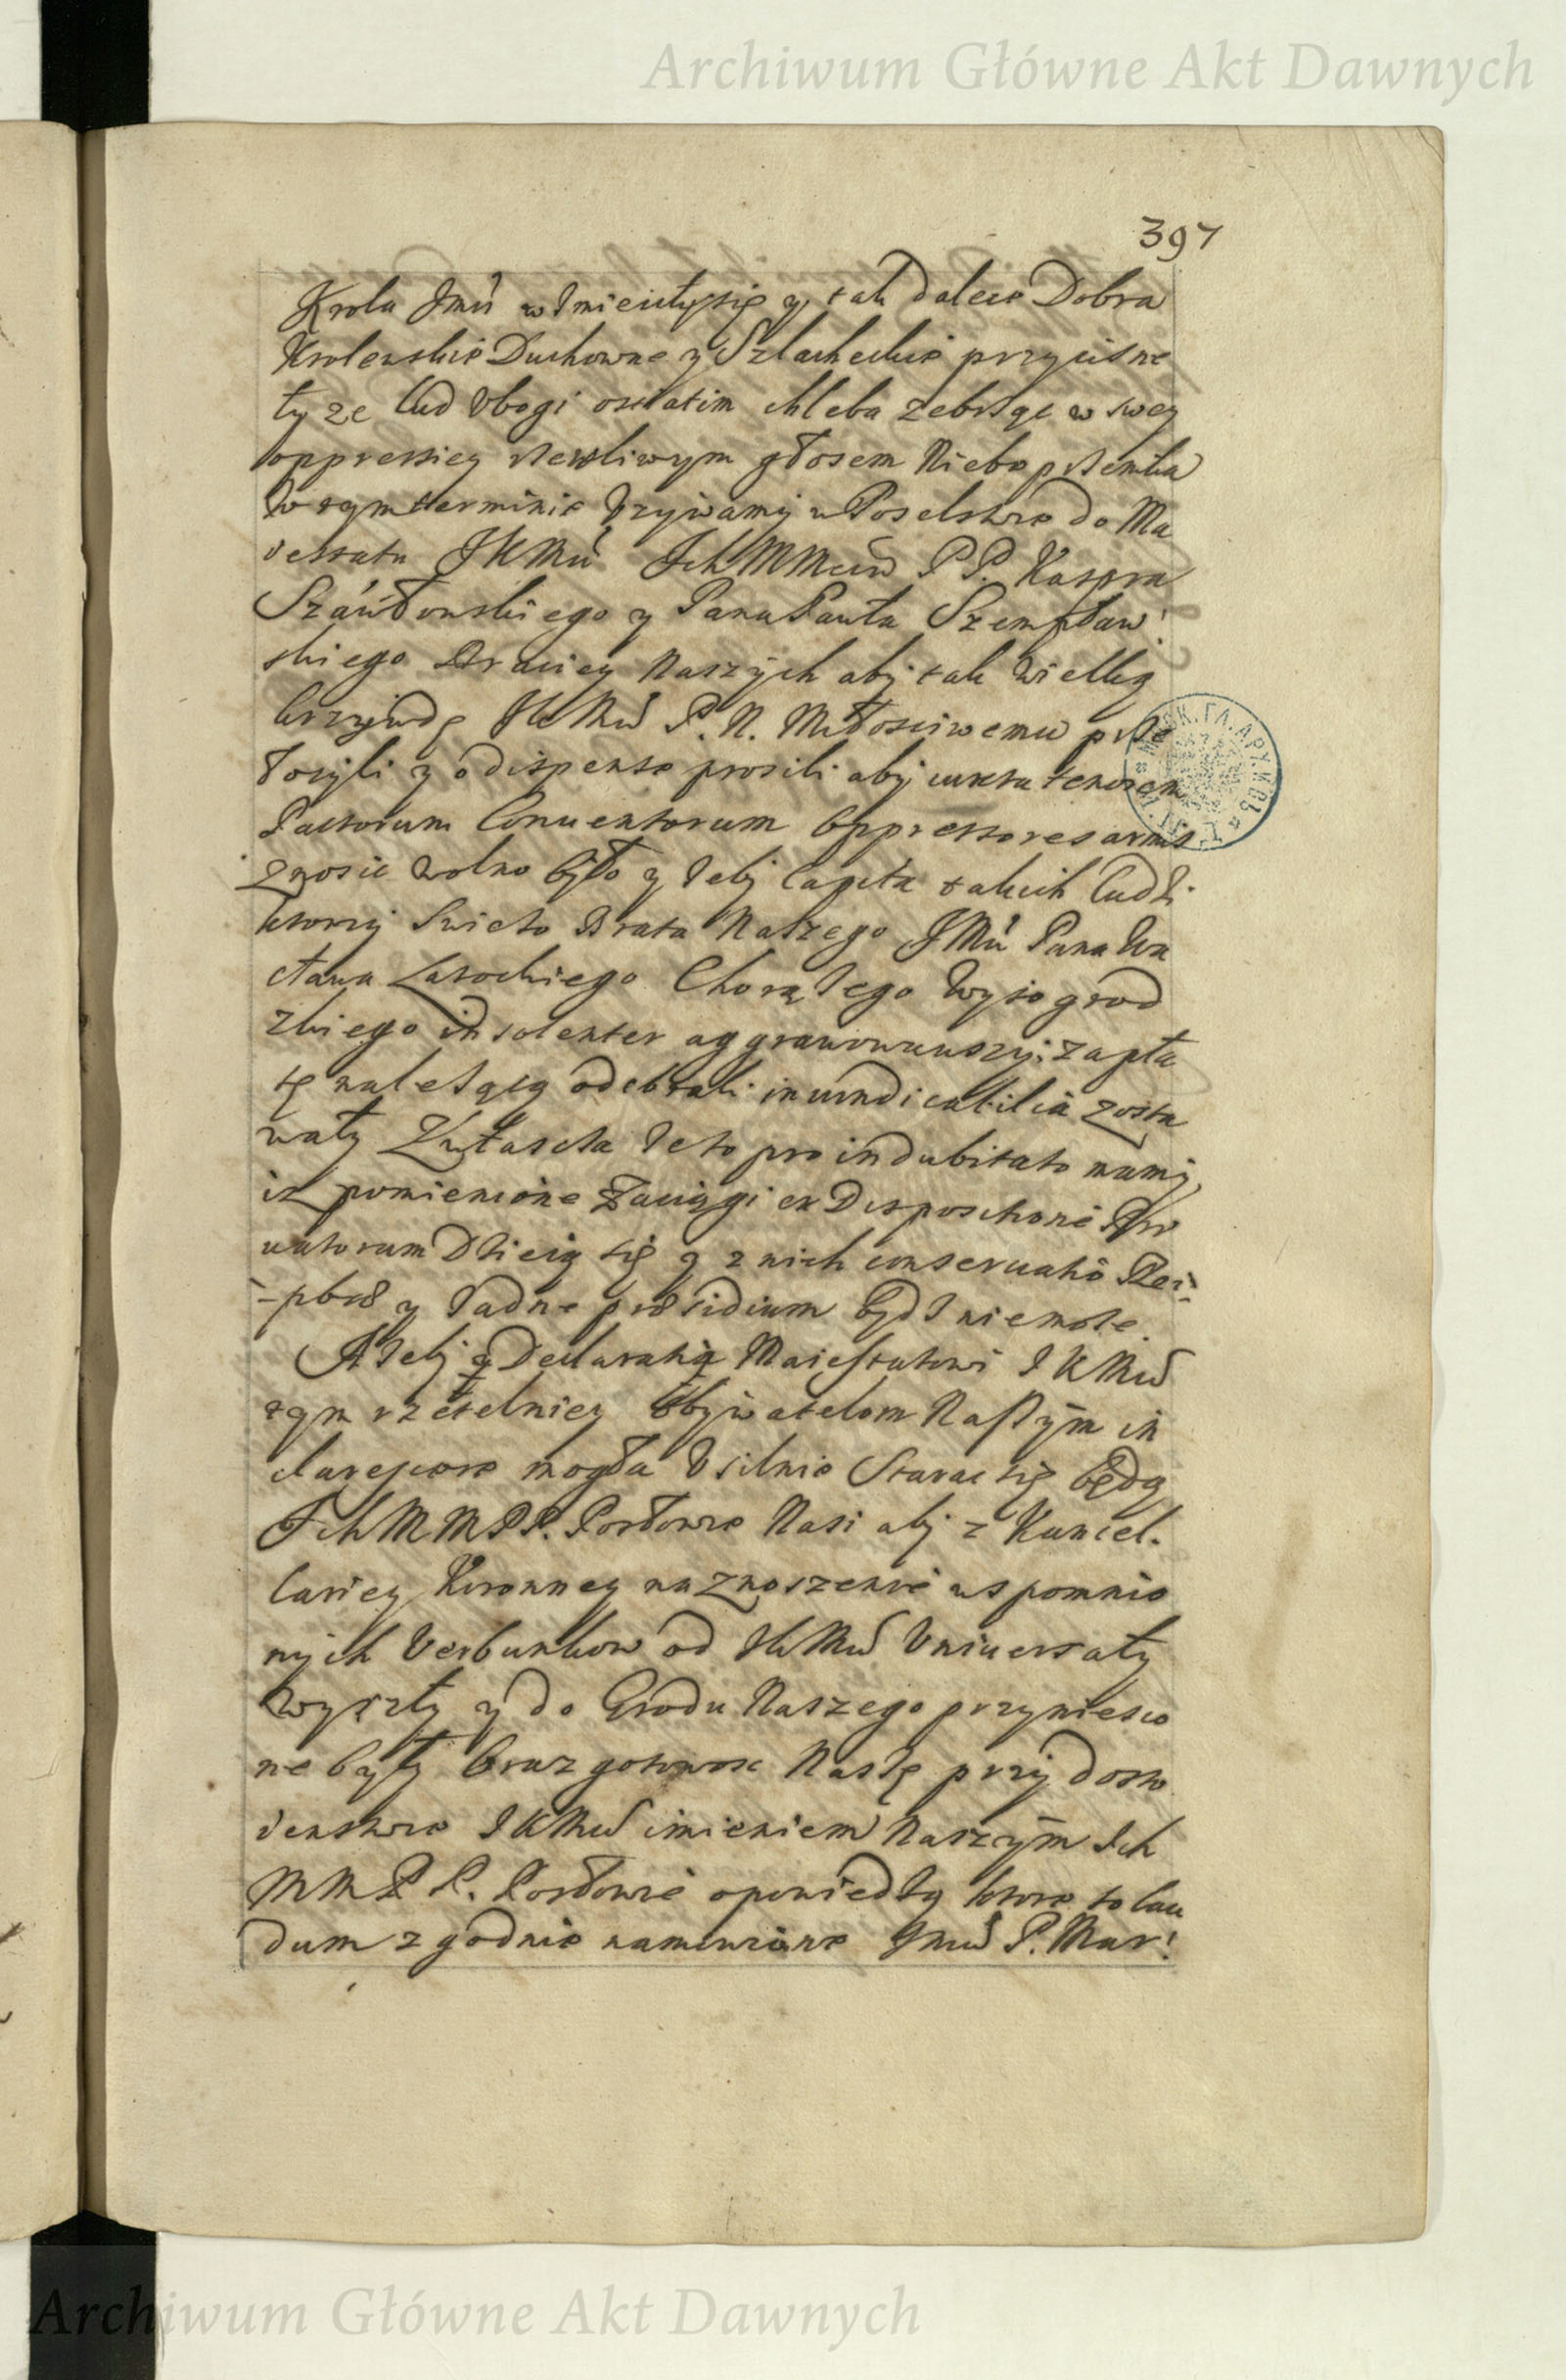 Archiwum Główne Akt Dawnych
397
Krola Jmći wdmieiuły się y tak dalece Dobra
Krolewskie Duchowne y Szlacheckie przycisne
ły ze lud Vbogi ostatim chleba zebrząc w swey
oppressiey rzewliwym głosem Niebo przenika
W tym terminie Vzywamy w Poselstwie do Ma
iestatu JKMći IchMMciow P.P. Kaspra
Szańkowskiego y Pana Pawła Szempław
skiego Braciey Naszych aby tak wielką
krzywdę JKMci P. N. Miłosciwemu prze
łozyli y o dispense prosili aby iuxta tenorem
Pactorum Conuentorum Oppressores armis
znosic wolno było y zeby capita takich ludzi
ktorzy swiezo Brata Naszego JMći Pana Wa
cława Lasockiego Chorązego Wyszogrod
zkiego insolenter aggrawowawszy zapła
tę nalezącą odebrali inuindicabilia zosta
wały Zwłascza ze to pro indubitato mamy
iz pomienione Zaciągi ex Dispositione Pri
uatorum Dzieią się y z nich conseruatio Rei
pbcæ y zadne præsidium bydz niemoze
A zeby ta Declaratia Maiestatowi JKMci
tym rzetelniey Obywatelom Naszym in
clarescere mogła Vsilnie Starac się będą
IchMMPP. Posłowie Nasi aby z Kancel.
lariey Koronney na znoszenie wspomnio
nych Verbunkow od JKMci Vniuersały
wyszły y do Grodu Naszego przyniesio
ne były Oraz gotowosc Naszę przy dosto
ienstwie JKMci imieniem Naszym Ich
MMPP. Posłowie opowiedzą ktore to lau
dum zgodnie namowione Jmci P. Mar:
Archiwum Główne Akt Dawnych